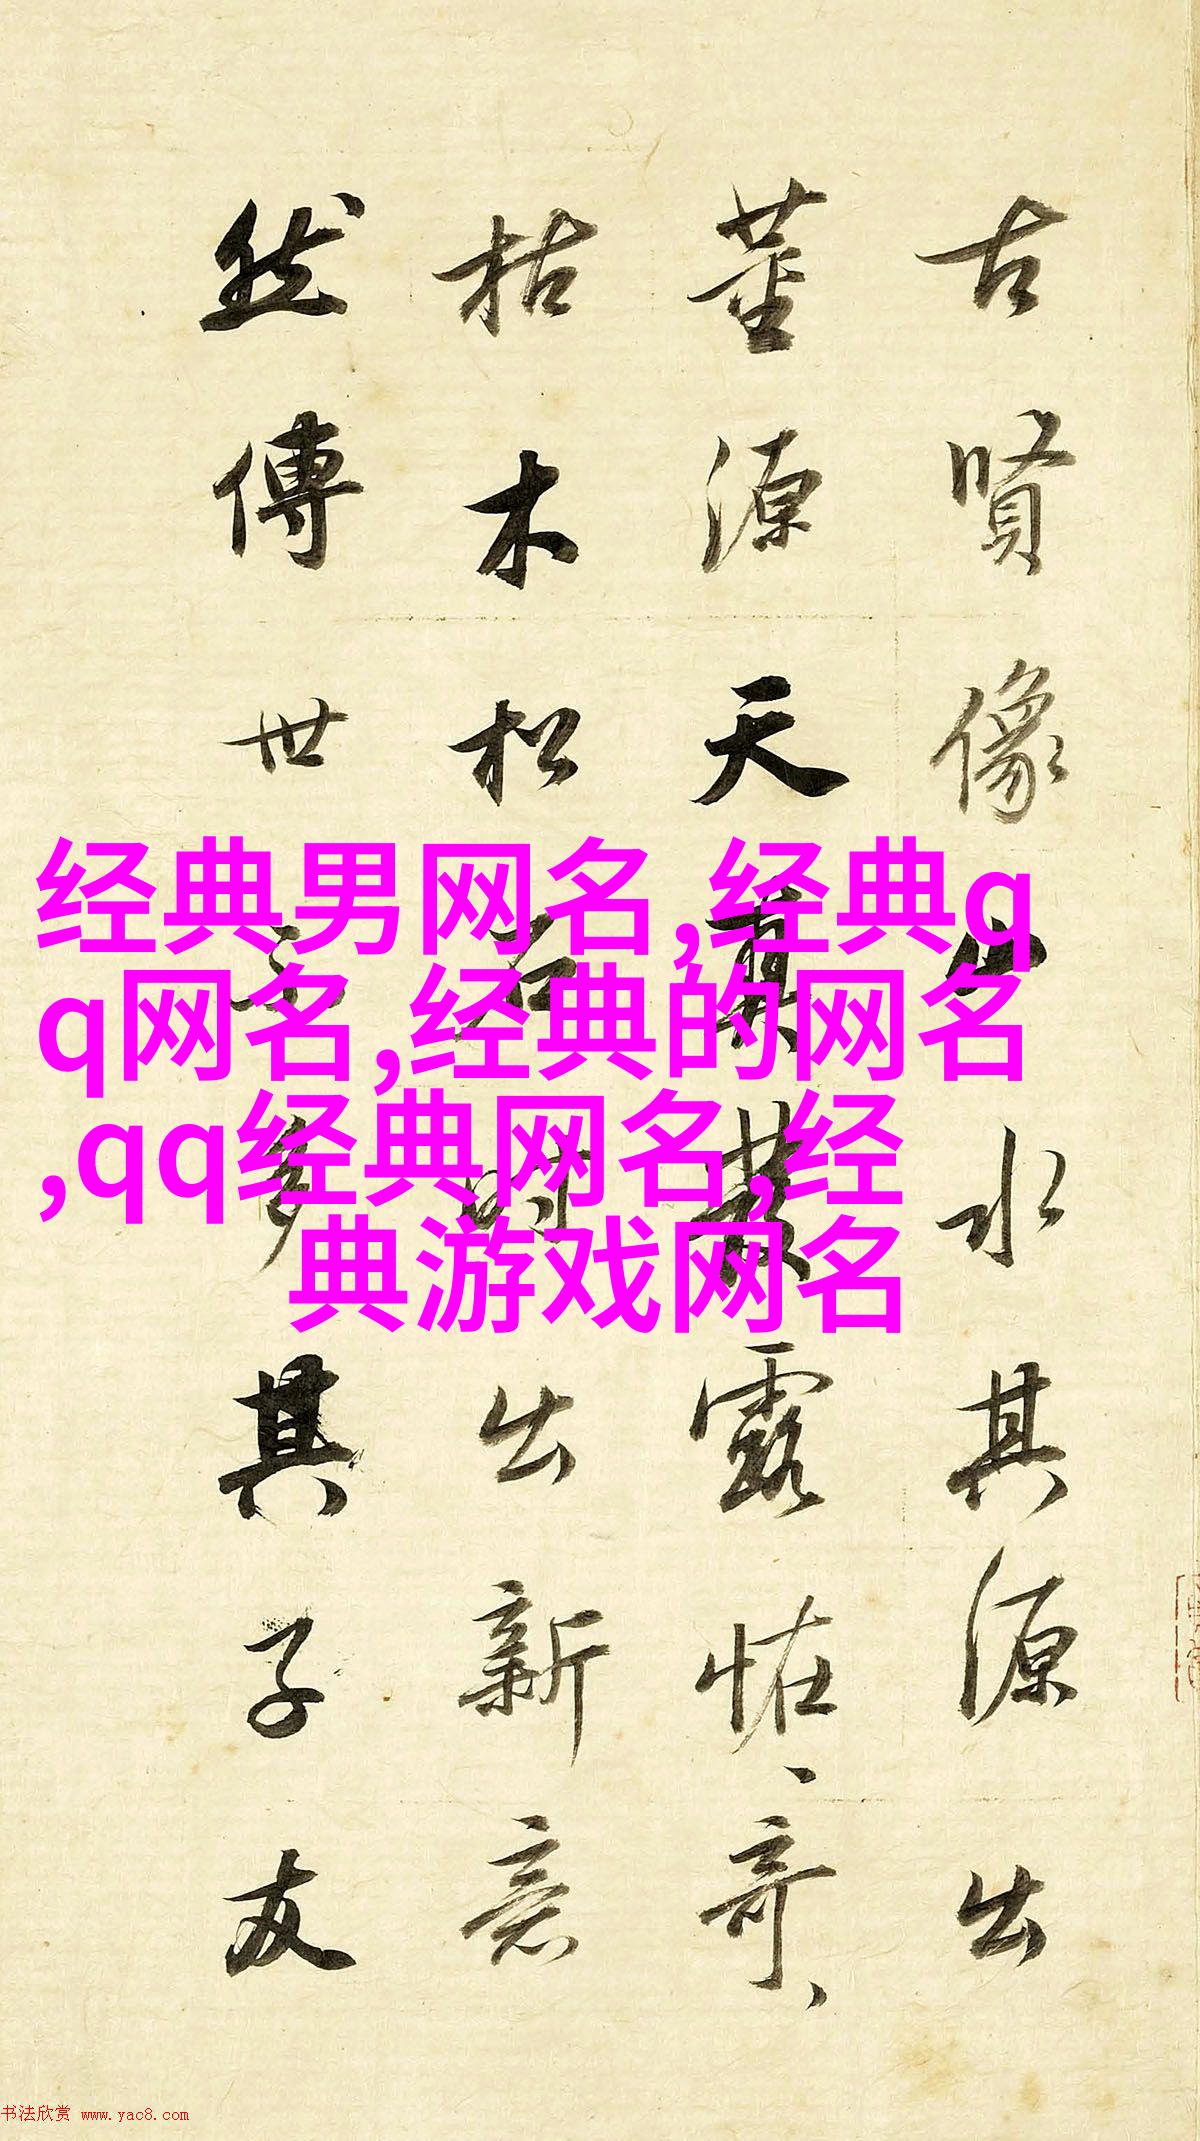 古賢像山水其源出
董源天真發露恠、奇、
枯木松石時出新意
然傳世不多其子友
经典男网名,经典q
q网名,经典的网名
,qq经典网名,经
典游戏网名
书法欣赏 www.yac8.com